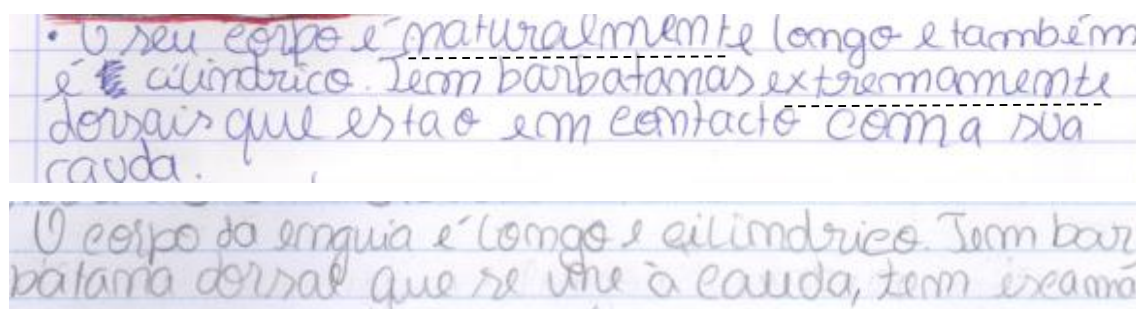 • O seu corpo é naturalmente longo e também
é cilindrico. Tem barbatanas extremamente
dorsais que estão em contacto com a sua
cauda.
O corpo da enguia é longo e cilindrico. Tem bar
batana dorsal que se une à cauda, tem escama